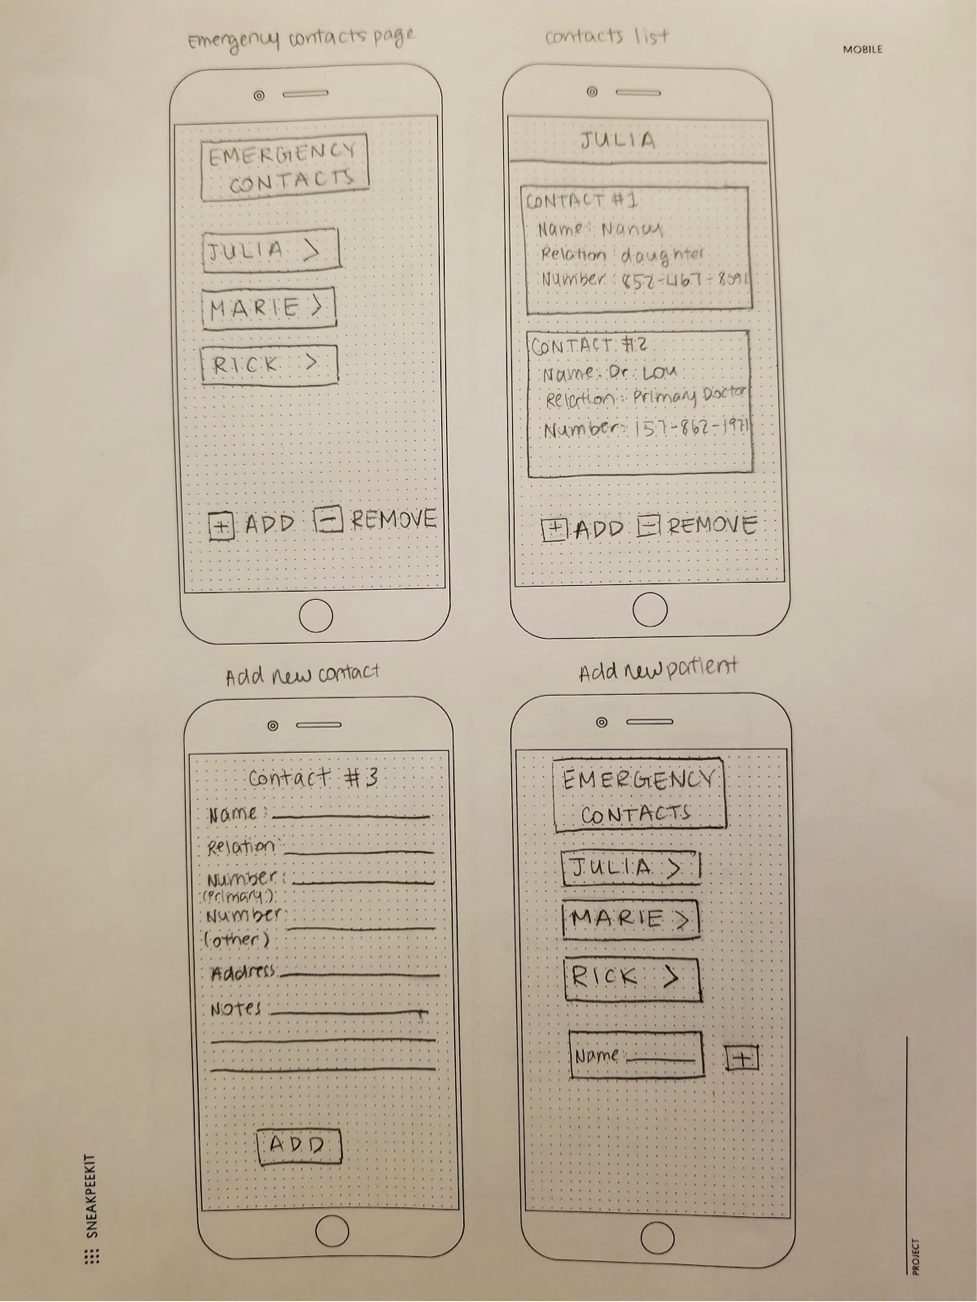 Emergency contacts page
EMERGENCY
CONTACTS
JULIA >
MARIE >
RICK >
+ ADD - REMOVE
contacts list
MOBILE
JULIA
CONTACT #1
Name: Nancy
Relation: daughter
Number: 852-467-8091
CONTACT #2
Name: Dr. Lou
Relation: Primary Doctor
Number: 157-862-1971
+ ADD - REMOVE
Add new contact
Contact #3
Name:
Relation:
Number:
(Primary):
Number
(other)
Address:
Notes
ADD
Add new patient
EMERGENCY
CONTACTS
JULIA >
MARIE >
RICK >
Name +
SNEAKPEEKIT
PROJECT